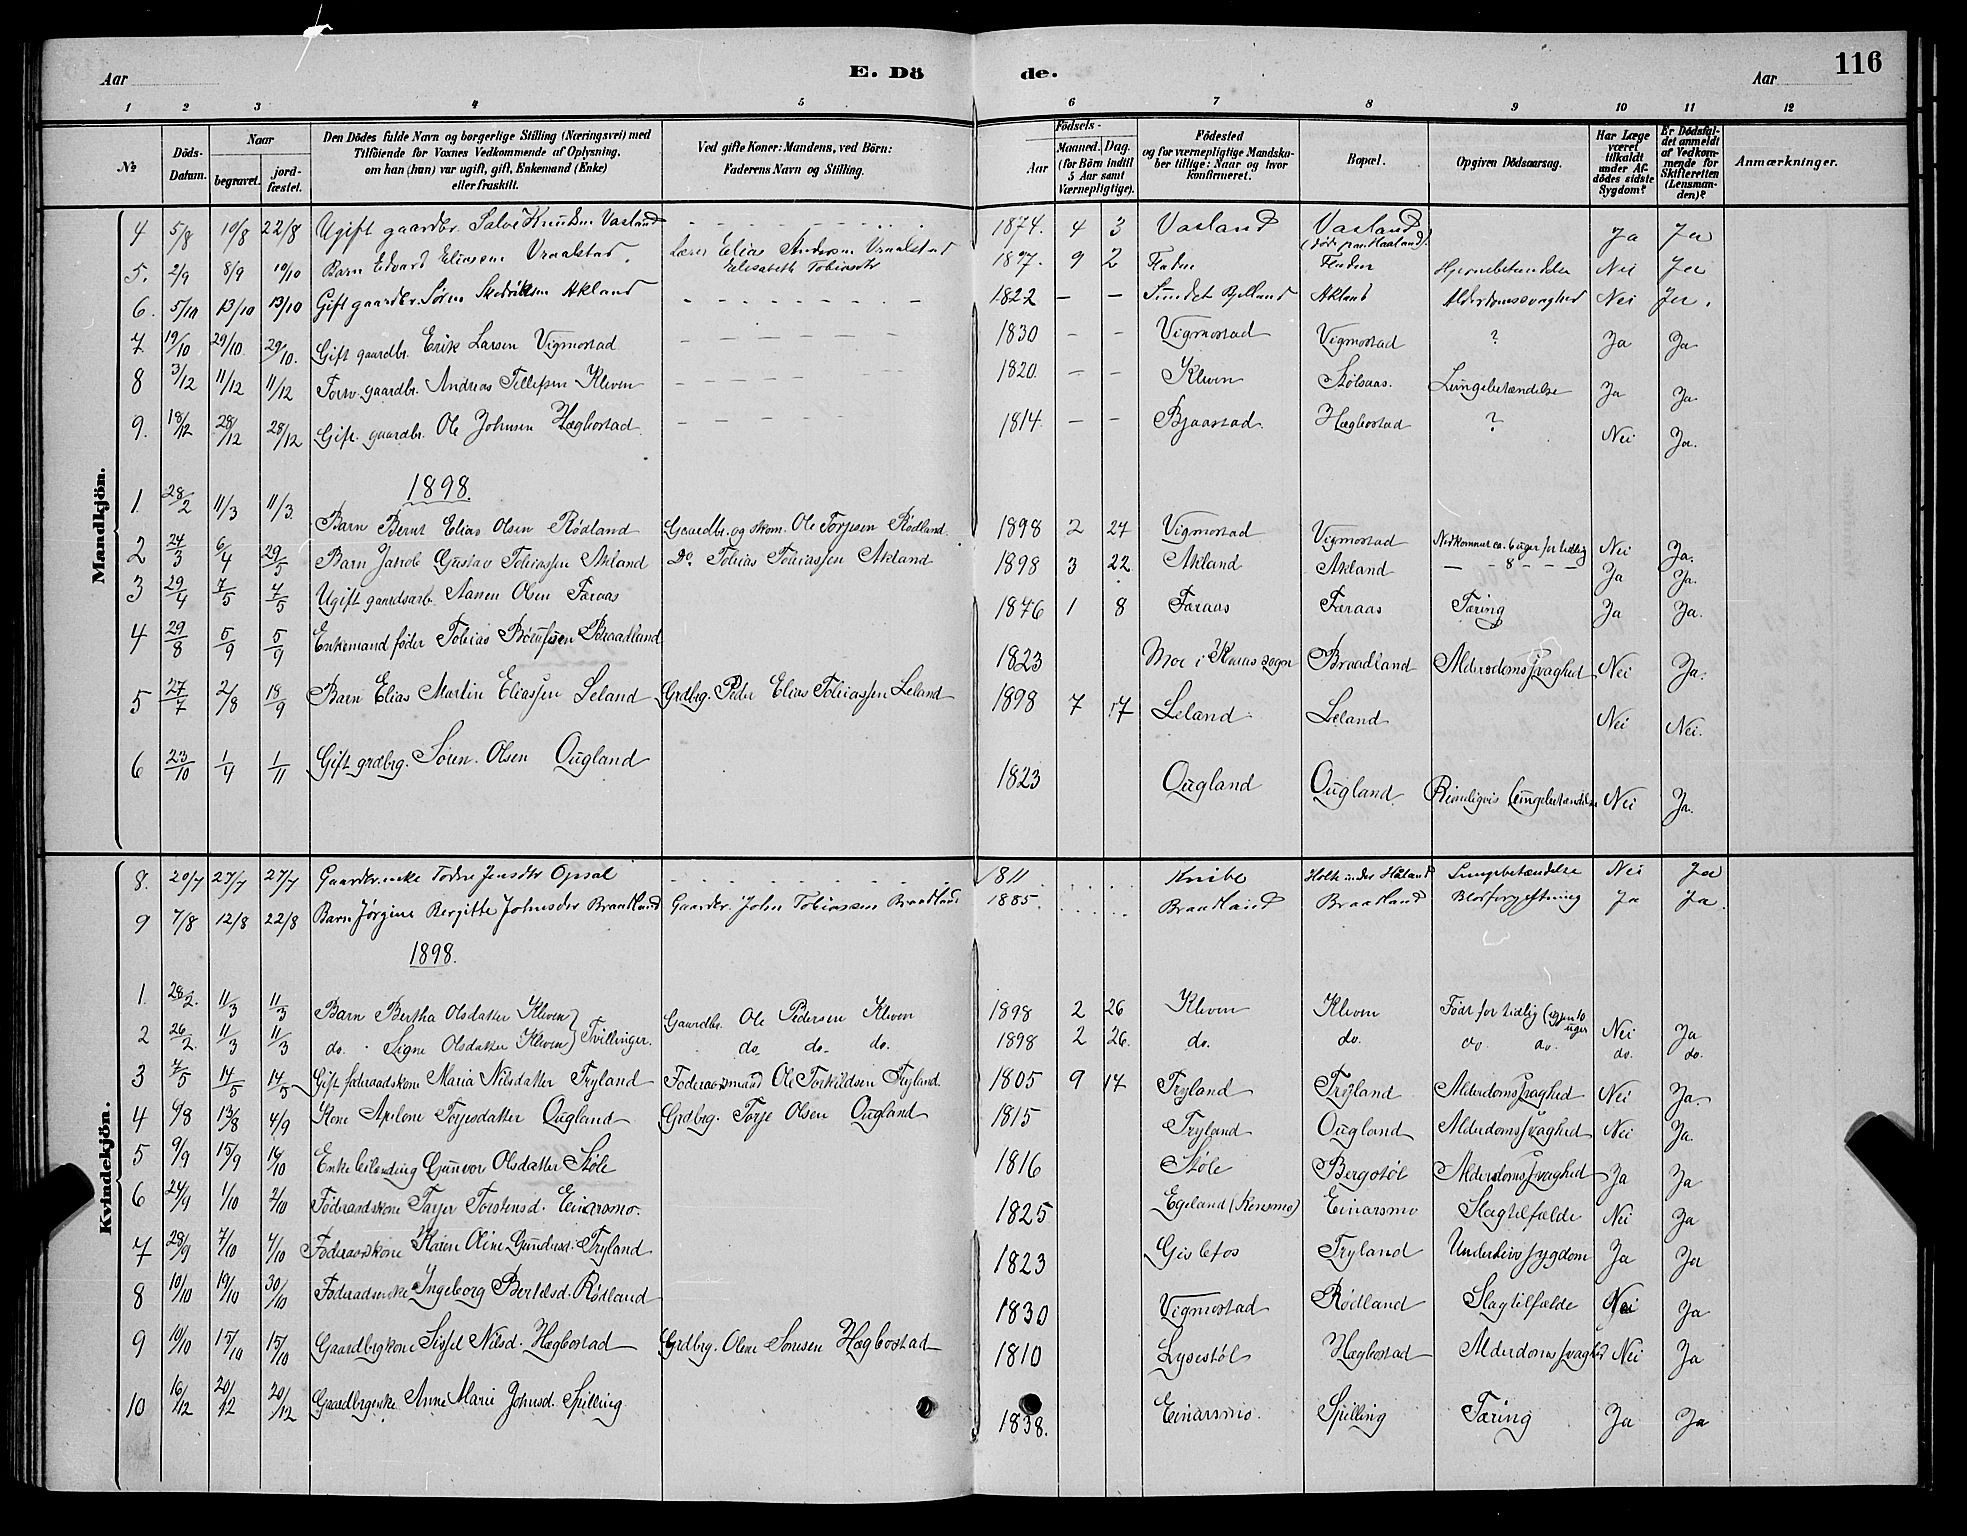 Aar
E. Dö
de.
Aar
116
1 2 3 4 5 6 7 8 9 10 11 12
No
Döds-Datum.
Naar
begravet.
jord-fæstet.
Den Dödes fulde Navn og borgerlige Stilling (Næringsvei) med
Tilföiende for Voxnes Vedkommende af Oplysning,
om han (hun) var ugift, gift, Enkemand (Enke)
eller fraskilt.
Ved gifte Koner: Mandens, ved Börn:
Faderens Navn og Stilling.
Födsels-
Aar
Maaned. Dag.
(for Börn indtil
5 Aar samt
Værnepligtige).
Födested
og for værnepligtige Mandska-
ber tillige: Naar og hvor
Konfirmeret.
Bopæl.
Opgiven Dödsaarsag.
Har Læge
været
tilkaldt
under Af-
dödes sidste
Sygdom?
Er Dödsfal-
det anmeldt
af Vedkom-
mende for
Skifteretten
(Lensman-
den)?
Anmærkninger.
Mandkjön.
4 5/8 10/8 22/8 Ugift gaardbr. Salve Knudsen Vasland 1874. 4 3 Vasland Vasland (död paa Haaland). Ja Ja
5. 2/9 8/9 10/10 Barn Edvard Eliassen Vraalstad. Lærer Elias Andersen Vraalstad Elisabeth Tobiasdtr 1897. 9 2 Hjernebetændelse Nei Ja
6. 5/10 13/10 13/10 Gift gaardbr. Sören Akland 1822 — — Sundet Bjelland Akland Alderdomssvaghed Nei Ja.
7. 19/10 29/10 29/10. Gift gaardbr. Erik Larsen Vigmostad 1830 — — Vigmostad Vigmostad ? Ja Ja
8 3/12 11/12 11/12 Forv. gaardbr. Andreas Tellefsen Kleven 1820. — — Kleven Stølsaas. Lungebetændelse Ja Ja.
9. 18/12 28/12 28/12 Gift. gaardbr. Ole Johnsen Hægbostad 1814. — — Bjaastad. Hægbostad ? Nei Ja.
1898.
1. 28/2 11/3 11/3 Barn Bernt Elias Olsen Rødland Gaardbr. og skom. Ole Torjesen Rødland. 1898 2 24 Vigmostad Vigmostad Nedkommet ca. 6 uger for tidlig Nei Ja.
2 24/3 6/4 29/5 Barn Jakob Gustav Tobiassen Akland Do. Tobias Tobiassen Akland 1898 3 22 Akland Akland — — 8 — — Ja Ja.
3 29/4 7/5 7/5 Ugift gaardsarb. Aanen Olsen Faraas 1876 1 8 Faraas Faraas Tæring Ja Ja.
4 29/8 5/9 5/9 Enkemand føder. Tobias Braadland 1823 Moe i sogn Braadland Alderdomssvaghed Nei Ja.
5 27/7 2/8 18/9 Barn Elias Martin Eliassen Leland Grdbrg. Peder Elias Tobiassen Leland 1898 7 17 Leland Leland Nei Nei.
6 23/10 1/4 1/11 Gift grdbrg. Sören Olsen Ougland 1823 Ougland Ougland Rimeligvis Lungebetændelse Nei Ja.
Kvindekjön.
8. 20/7 27/7 27/7 Gaardbr. enke Todne Jensdtr Opsal 1811 Knibe Holte under Haaland Lungebetændelse Nei Ja
9 7/8 12/8 22/8 Barn Jörgine Bergitte Johnsdtr Braadland Gaardbr. John Tobiassen Braadland 1885. Braadland Braadland Blodforgiftning Ja Ja.
1898.
1. 28/2. 11/3 11/3 Barn Bertha Olsdatter Kleven Gaardbr. Ole Pedersen Kleven 1898 2 26 Kleven Kleven Født for tidlig (igjen 10 uger Nei Ja
2 26/2. 11/3 11/3 do. Signe Olsdatter Kleven } Tvillinger. do. do. do. 1898 2 26. do. do. do. do. do. do.
3 7/5 14/5 14/5 Gift føderaadskone Maria Nilsdatter Tryland Føderaadsmand Ole Torkildsen Tryland. 1805 9 14 Tryland Tryland Alderdomssvaghed Nei Ja.
4 9/8 13/8 4/9 Kone Apelone Torjesdatter Ougland Grdbrg. Torje Olsen Ougland 1815 Tryland Ougland Alderdomssvaghed Nei Ja.
5 9/9 15/9 19/10 Enke leilending Gunvor Olsdatter Støle 1816 Støle Bergstøl Alderdomssvaghed Ja Ja
6 24/9 1/10 2/10 Föderaadskone Tarjer Torstensd. Einarsmo. 1825 Egeland (Konsmo) Einarsmo Slagtilfælde Nei Ja
7 28/9 7/10 4/10 Föderaadskone Karen Oline Gundersd. Tryland 1823 Gislefos Tryland Underlivssygdom Ja Ja
8 10/10 19/10 30/10 Föderaadsenke Ingeborg Bertelsd. Rødland 1830 Vigmostad Rødland Slagtilfælde Nei Ja
9 10/10 15/10 15/10 Gaardbrgkone Sissel Nilsd. Hægbostad Grdbrg. Olene Sønesen Hægbostad 1810 Lysestöl Hægbostad Alderdomssvaghed Nei Ja
10 16/12 20/12 20/12 Gaardbrgenke Anne Marie Johnsd. Spilling 1838. Einarsmo. Spilling Tæring Ja Ja